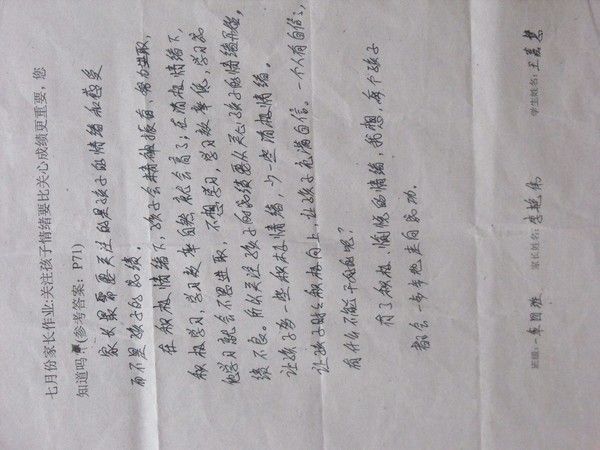 七月份家长作业:关注孩子情绪要比关心成绩更重要，您
知道吗(参考答案：P71)
家长最需要关注的是孩子的情绪和感受
而不是孩子的成绩。
在积极情绪下，孩子会精神振奋，努力进取，
积极学习，学习效率自然就会高了，在消极情绪下，
他学习就会不思进取，不想学习，学习效率低，学习成
绩不良。所以关注孩子的成绩要从关心孩子的情绪开始，
让孩子多一些积极情绪，少一些消极情绪。
让孩子时时积极向上，让孩子充满自信。一个人有自信了，
有什么不能干成的呢？
有了积极、愉悦的情绪，我想，每个孩子
都会一步步地走向成功。
班级：一年四班 家长姓名：李艳伟 学生姓名：王慧